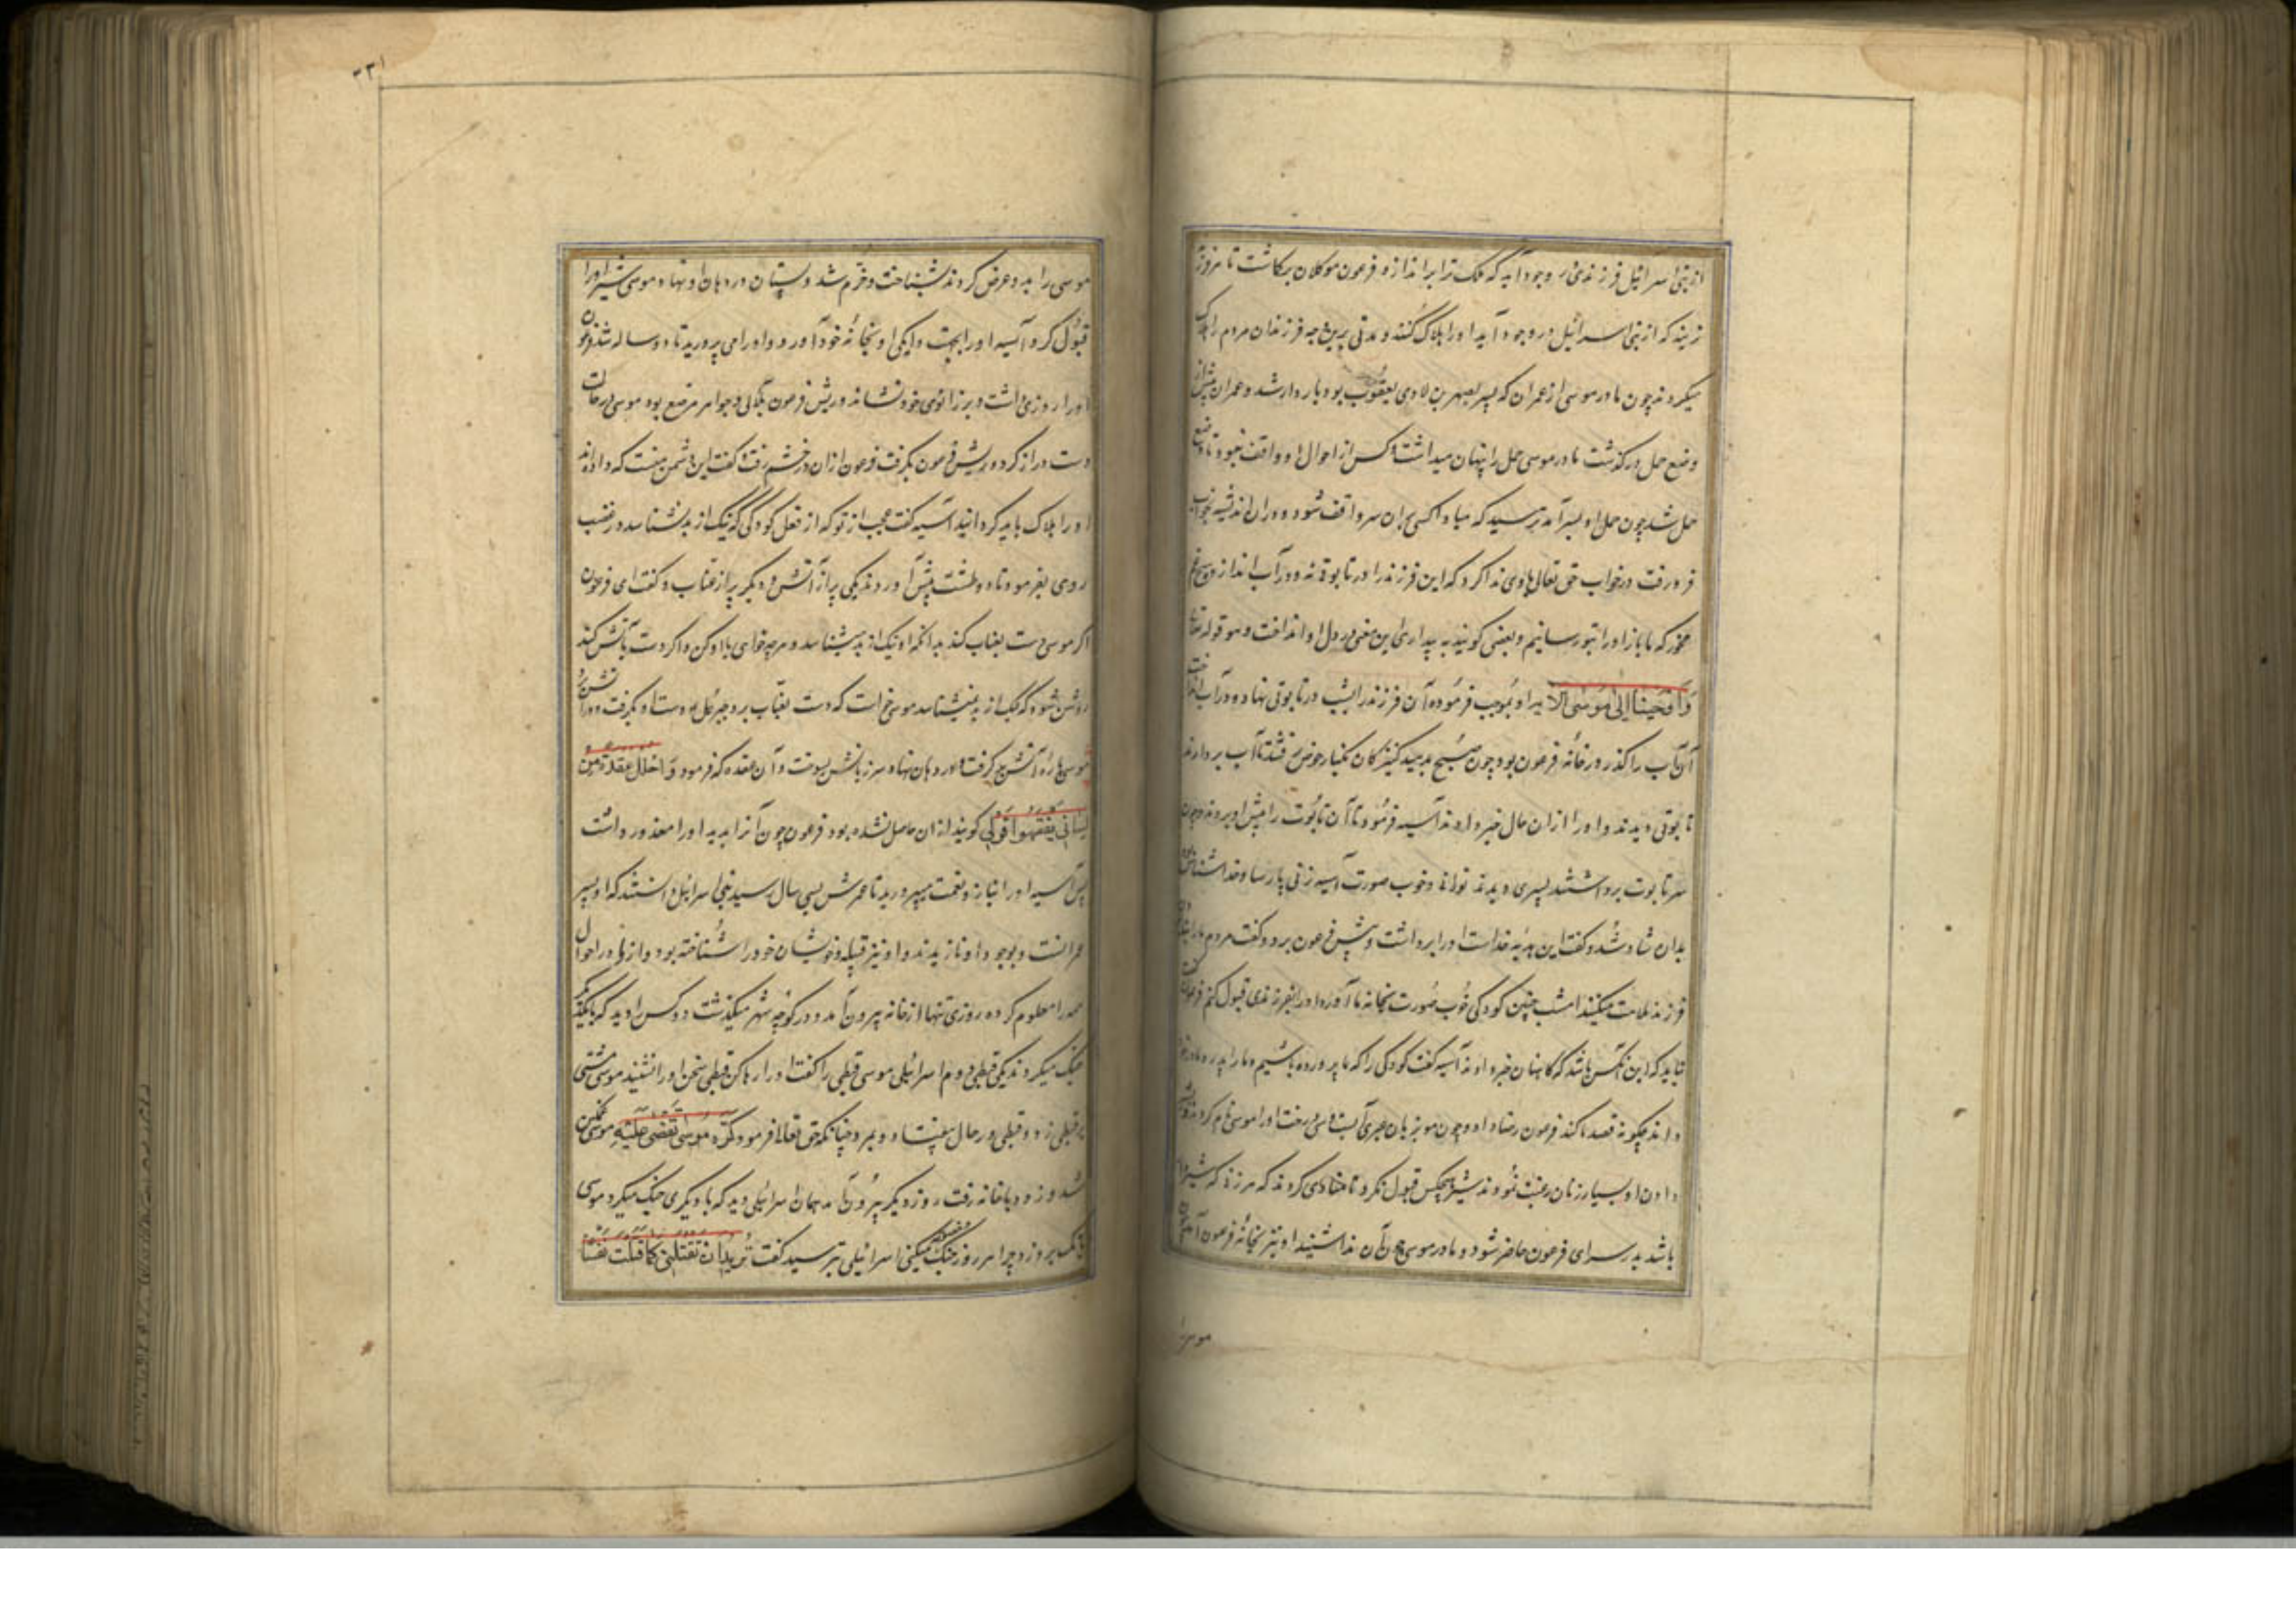 از بنی اسرائیل فرزندی در وجود آید که ملک ترا براندازد فرعون موکلان برکاشت تا هر فرزند
نرینه که از بنی اسرائیل در وجود آید او را هلاک کنند و مدتی برین جه فرزندان مردم را هلاک
میکردند چون مادر موسی از عمران که پسر یصهر بن لاوی یعقوب بود بار دار شد و عمران پیش از
وضع حمل در گذشت مادر موسی حمل را پنهان میداشت و کس از احوال او واقف نبود تا وضع
حمل شد چون حمل او بسر آمد بترسید که مبادا کسی بران سر واقف شود و در ان اندیشه بخواب
فرو رفت در خواب حق تعالی باوی ندا کرد که این فرزند را در تابوتی نه و در آب انداز و هیچ غم
مخور که ما باز او را بتو رسانیم و بعضی کویند به بیداری این معنی در دل او انداخت و هو قوله تعالی
وَاَوْحَیْنَا اِلیٰ مُوسٰی الآیه او بموجب فرموده آن فرزند را بشب در تابوتی نهاد و در آب انداخت
آن آب را کذر در خانه فرعون بود چون صبح بدمید کنیزکان بکنار حوض رفتند تا آب بردارند
تابوتی دیدند و او را ازان حال خبر دادند آسیه فرمود تا آن تابوت را پیش او بردند و چون
سر تابوت برداشتند پسری دیدند توانا و خوب صورت آسیه زنی پارسا و خدا شناس
بدان شاد شد و کفت این هدیه خداست او را برداشت و پیش فرعون برد و کفت مردم ما را بنا
فرزند ملامت میکنند امشب چنین کودکی خوب صورت بخانه ما آورده او را بفرزندی قبول کنم فرعون کفت
نباید که این آنکس باشد که کاهنان خبر دادند آسیه کفت کودکی را که ما پرورده باشیم و ما را پدر و مادر
داند چگونه قصد ما کند فرعون رضا داد و چون مو بزبان عبری آب و سی درخت او را موسی نام کردند
دادن او بسیار زنان رغبت نمودند شیر هیچکس قبول نکرد تا منادی کردند که هر زنی که شیر
باشد بدر سرای فرعون حاضر شود و مادر موسی چون آن ندا شنید او نیز بخانه فرعون آمد
موسی را
۲۳۱
موسی را بدو عرض کردند بشناخت و خرم شد و پستان در دهان او نهاد موسی شیر او را
قبول کرد آسیه او را بجهت دایکی او بخانه خود آورد و او را می پرورید تا دو ساله شد فرعون
او را روزی داشت و بر زانوی خود نشاند و ریش فرعون بلآلی و جواهر مرصع بود موسی در حالت
دست دراز کرد و ریش فرعون بگرفت فرعون ازان در خشم رفت و کفت این دشمن منست که داده اند
او را هلاک باید کردانید آسیه کفت عجب از تو که از فعل کودکی که نیک از بد نشناسد در غضب
روی بفرمود تا دو طشت پیش آوردند یکی پر از آتش و دیگر پر از عناب و کفت ای فرعون
اکر موسی دست بعناب کند بدانکه او نیک از بد میشناسد و هرچه خواهی با او کن و اکر دست بآتش کند
روشن شود که نیک از بد نمیشناسد موسی خواست که دست بعناب برد جبرئیل دست او بگرفت و در آتش زد
موسی پاره آتش برکرفت و در دهان نهاد و سر زبانش بسوخت و آن عقده که فرمود وَاحْلُلْ عُقْدَةً مِنْ
لِسَانِی یَفْقَهُوا قَوْلِی کویند ازان حاصل شده بود فرعون چون آنرا بدید او را معذور داشت
پس آسیه او را بناز و نعمت میپرورید تا عمرش بسی سال رسید بنی اسرائیل دانستند که او پسر
عمرانست و بوجود او نازیدند و او نیز قبیله و خویشان خود را شناخته بود و از اول در احوال
همه را معلوم کرده روزی تنها از خانه بیرون آمد و در کوچه شهر میکذشت دو کس را دید که با یکدیگر
جنک میکردند یکی قبطی و دوم اسرائیلی موسی قبطی را کفت او را رها کن قبطی سخن او را نشنید موسی مشتی
بر قبطی زد و قبطی در حال بیفتاد و بمرد چنانکه حق تعالی فرمود فَوَکَزَهُ مُوسٰی فَقَضٰی عَلَیْهِ موسی غمکین
شد و زود با خانه رفت روز دیگر بیرون آمد همان اسرائیلی دید که با دیگری جنک میکرد موسی
بانک برو زد و چرا هر روز جنک میکنی اسرائیلی بترسید کفت تُرِیدُ اَنْ تَقْتُلَنِی کَمَا قَتَلْتَ نَفْسًا